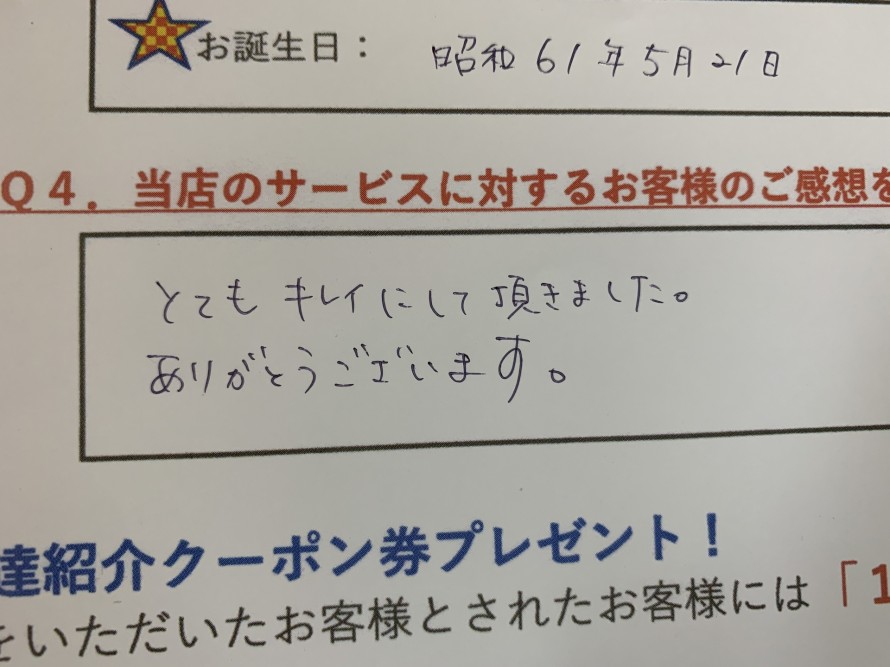 お誕生日： 昭和61年5月21日
Q4．当店のサービスに対するお客様のご感想を
とてもキレイにして頂きました。
ありがとうございます。
達紹介クーポン券プレゼント！
をいただいたお客様とされたお客様には「1